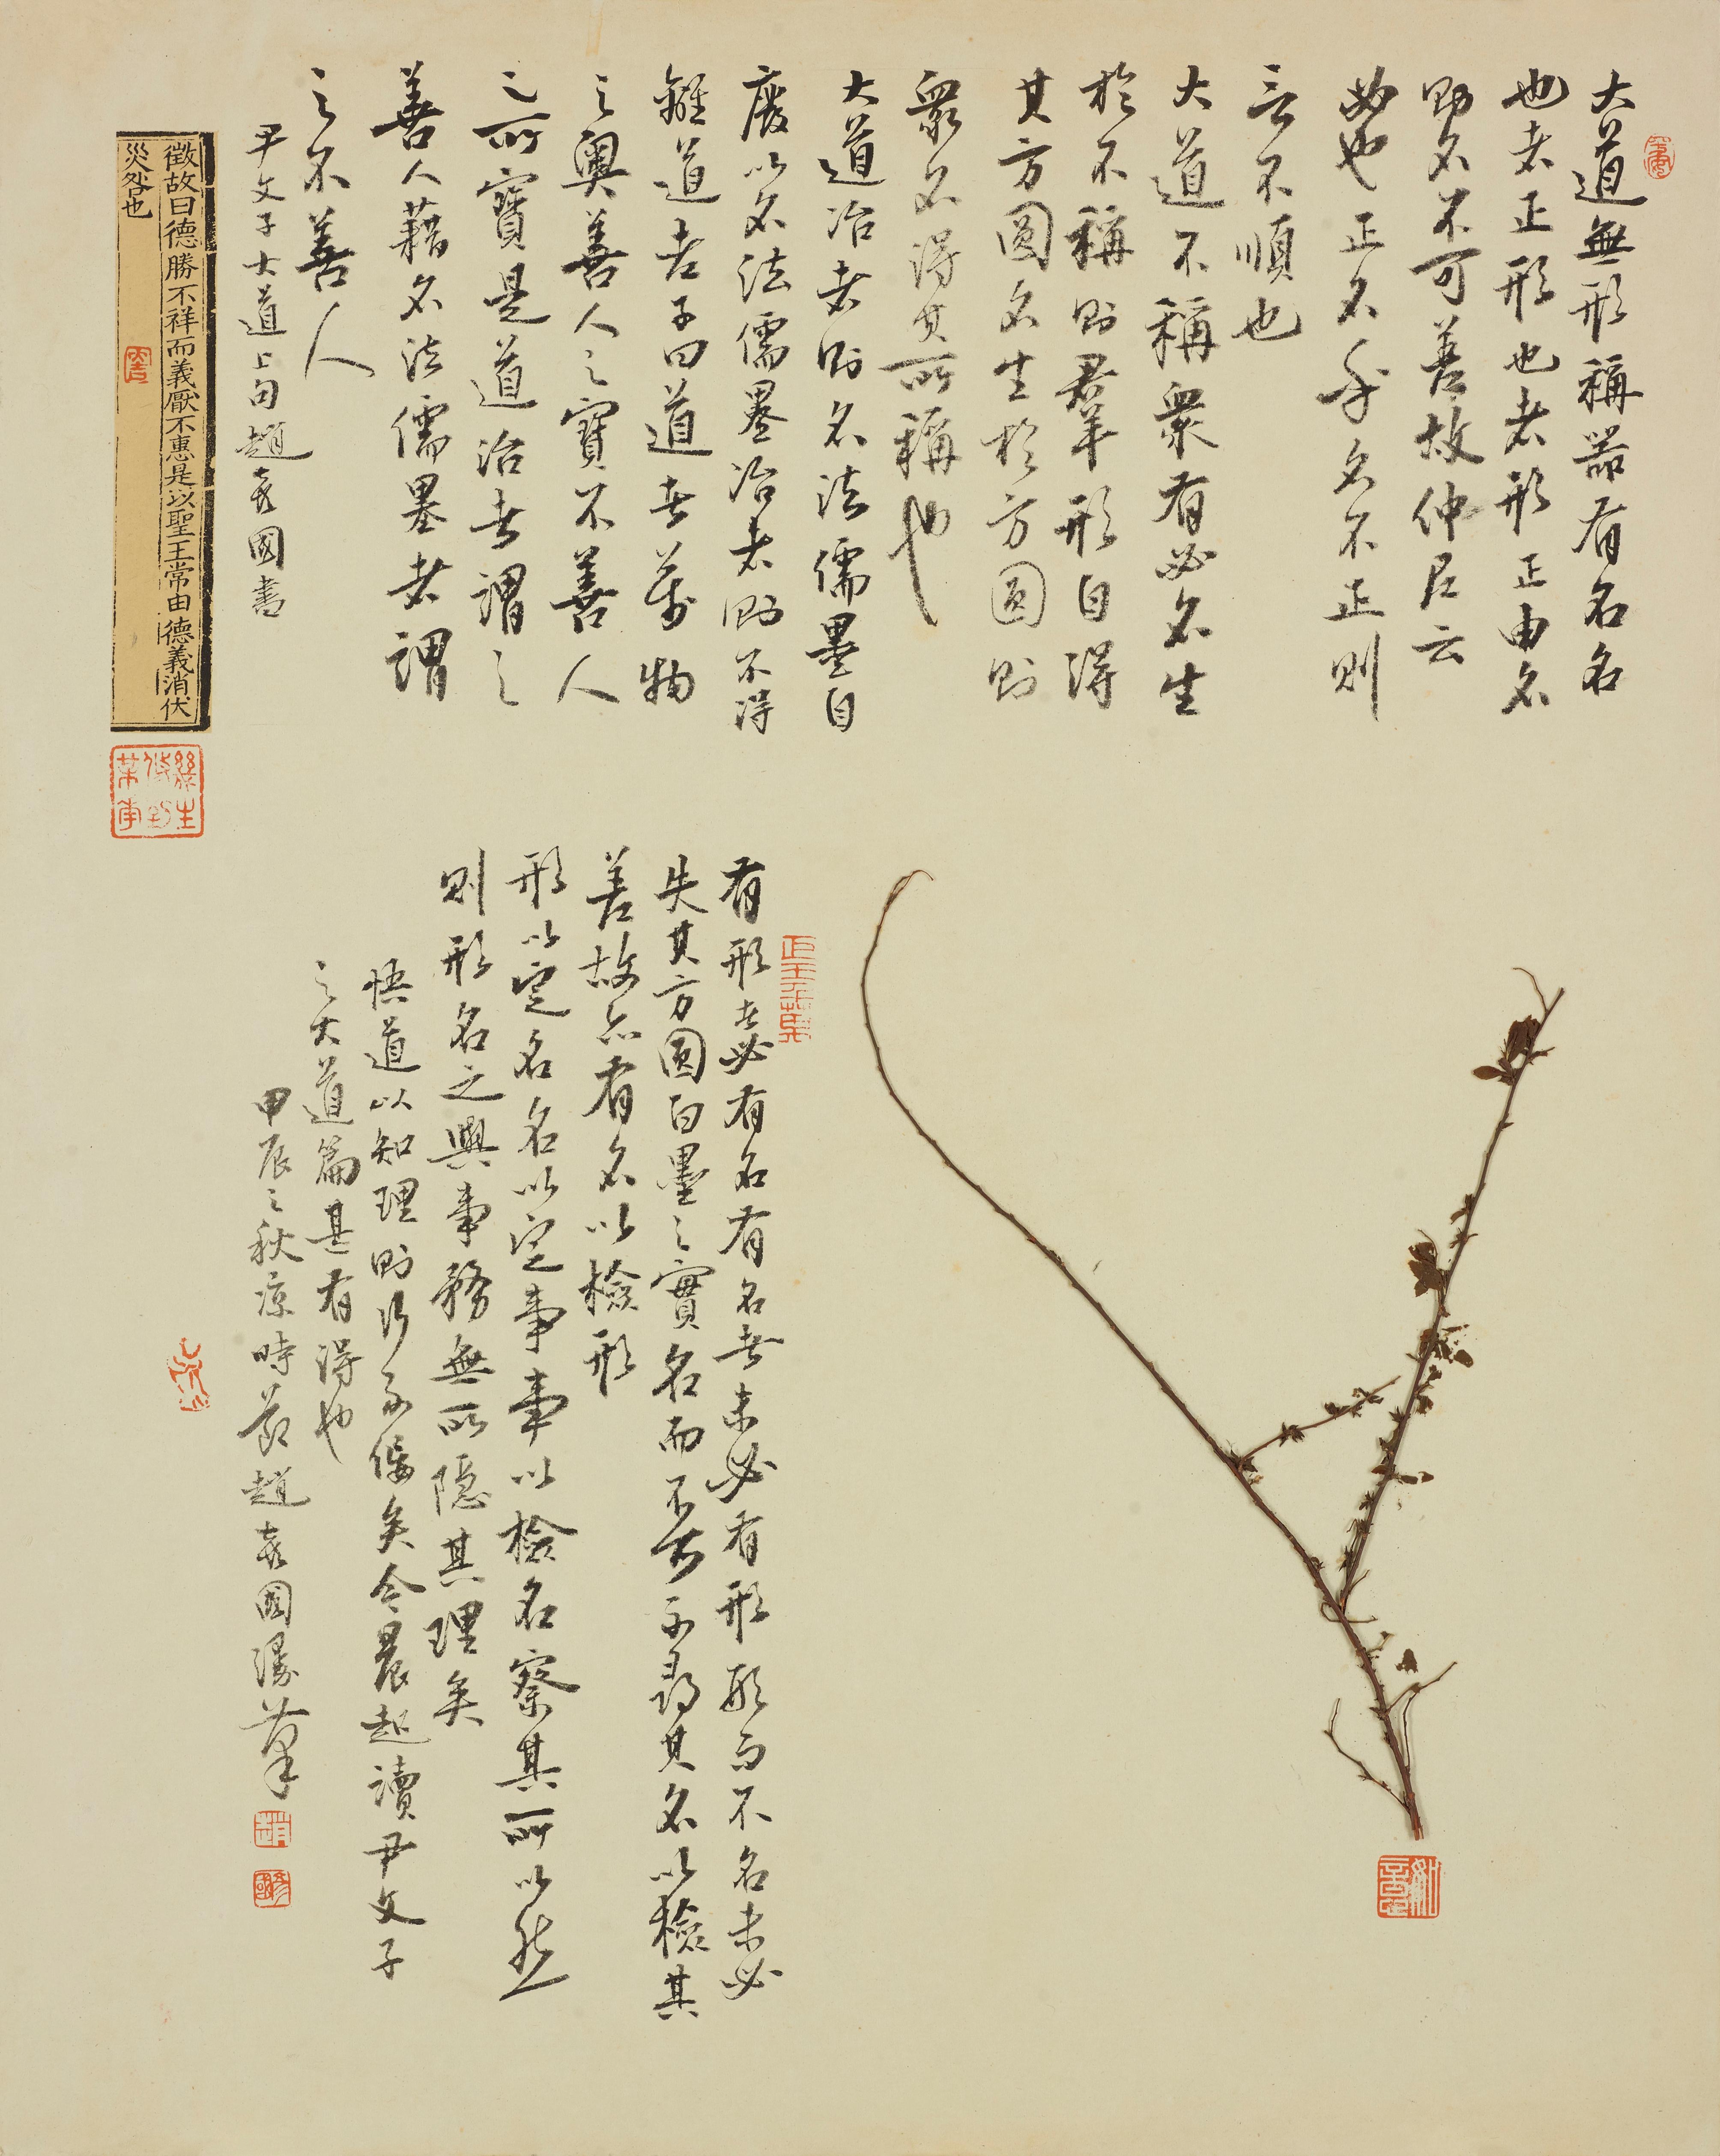 大道無形稱器有名名
也者正形也者形正由名
則名不可差故仲尼云
必也正名乎名不正則
言不順也
大道不稱衆有必名生
於不稱則羣形自得
其方圓名生於方圓則
衆名得其所稱也
大道治者則名法儒墨自
廢以名法儒墨治者則不得
離道老子曰道者萬物
之奧善人之寶不善人
之所寶是道治者謂之
善人藉名法儒墨者謂
之不善人
尹文子大道上句趙國書
徵故曰德勝不祥而義厭不惠是以聖王常由德義消伏
災咎也
有形者必有名有名者未必有形形而不名未必
失其方圓白墨之實名而不可不尋其名以檢其
差故亦有名以檢形
形以定名名以定事事以檢名察其所以然
則形名之與事物無所隱其理矣
悟道以知理則行不倭矣今晨起讀尹文子
之大道篇甚有得也
甲辰之秋涼時節趙國漫筆